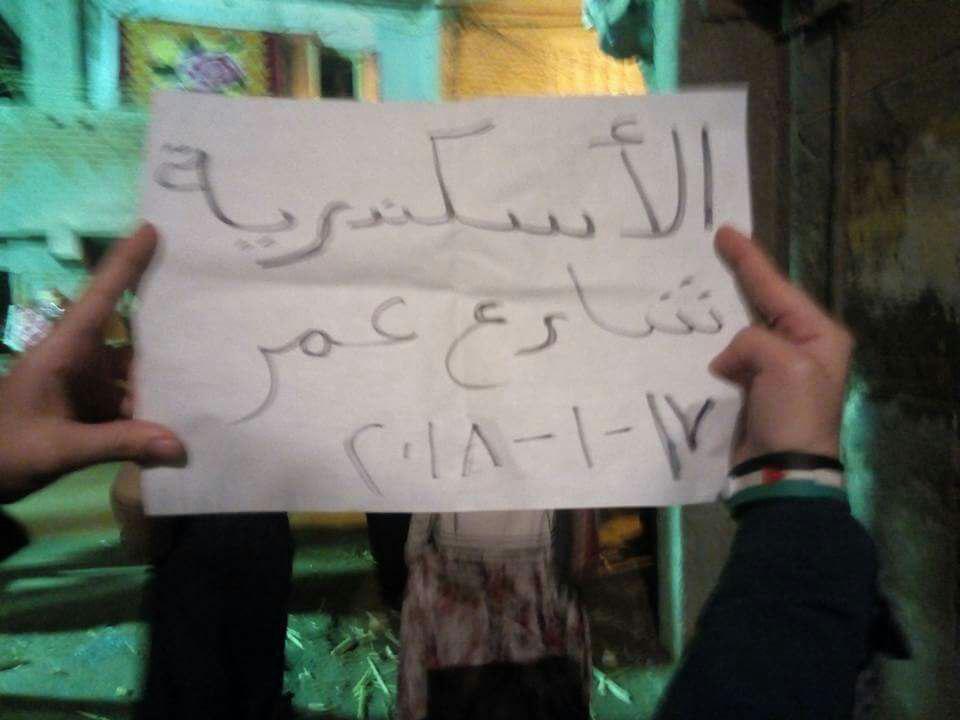 الأسكندرية
شارع عمر
١٧-١-٢٠١٨